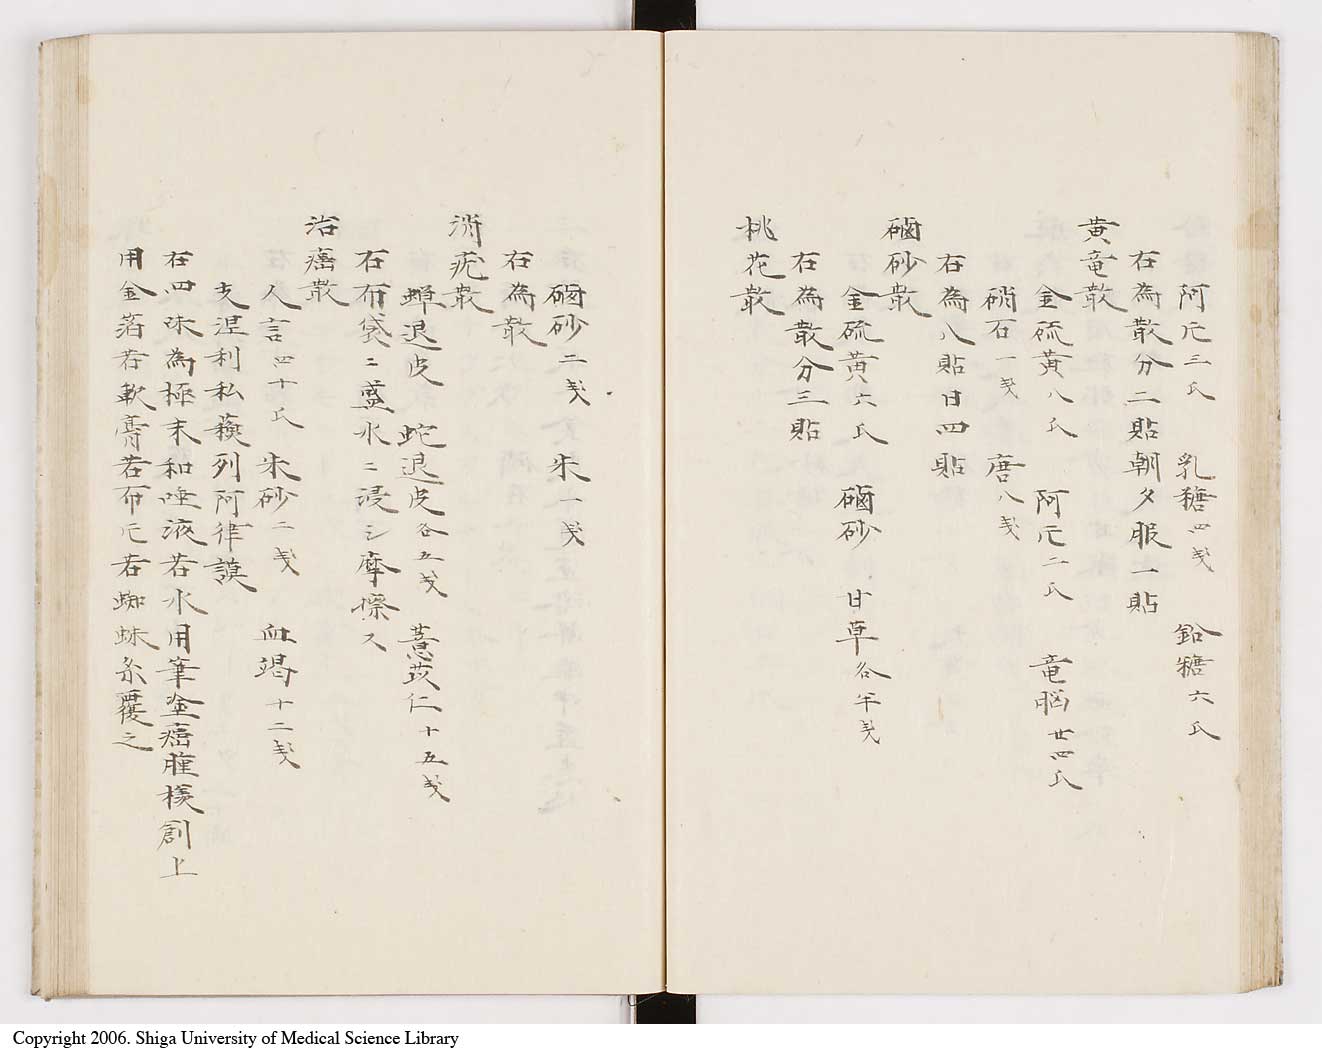 阿片三氏　乳糖四戔　鉛糖六氏
右為散分二貼朝夕服一貼
黄竜散
金硫黄八氏　阿片二氏　竜脳廿四氏
硝石一戔　唐八戔
右為八貼日四貼
磠砂散
金硫黄六氏　磠砂　甘草各半戔
右為散分三貼
桃花散
磠砂二戔　朱一戔
右為散
消疣散
蝉退皮　蛇退皮各五戔　薏苡仁十五戔
右布袋ニ盛水ニ浸シ摩擦ス
治癌散
人言四十氏　朱砂二戔　血竭十二戔
支涅利私蕤列阿律謨
右四味為極末和唾液若水用筆塗癌腫様創上
用金箔若軟膏若布片若蜘蛛糸覆之
Copyright 2006. Shiga University of Medical Science Library